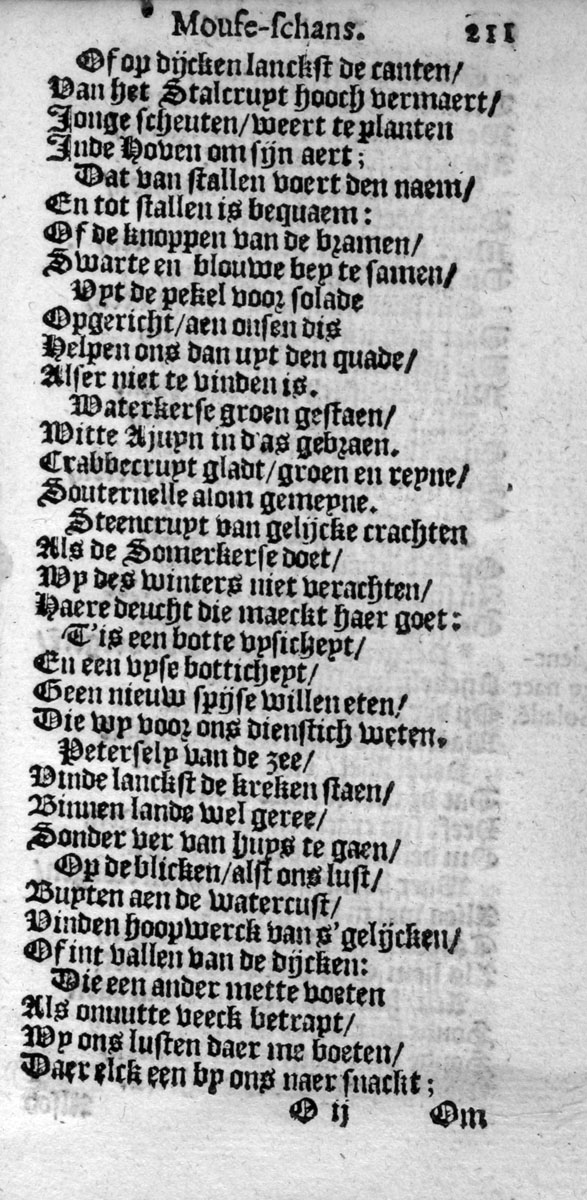 Mouse-schans. 211
Of op dijcken lanckst de canten/
Van het Stalcruyt hooch vermaert/
Jonge scheuten/weert te planten
Inde Hoven om sijn aert;
Dat van stallen voert den naem/
En tot stallen is bequaem:
Of de knoppen van de bramen/
Swarte en blouwe bey te samen/
Uyt de pekel voor solade
Opgericht/aen onsen dis
Helpen ons dan uyt den quade/
Alser niet te vinden is.
Waterkerse groen gestaen/
Witte Ajuyn in d'as gebraen.
Crabbecruyt gladt/groen en reyne/
Souternelle alom gemeyne.
Steencruyt van gelijcke crachten
Als de Somerkerse doet/
Wy des winters niet verachten/
Haere deucht die maeckt haer goet:
T'is een botte vysicheyt/
En een vyse botticheyt/
Geen nieuw spijse willen eten/
Die wy voor ons dienstich weten.
Petersely van de zee/
Vinde lanckst de kreken staen/
Binnen lands wel geree/
Sonder ver van huys te gaen/
Op de blicken/alst ons lust/
Buyten aen de watercust/
Vinden hoopwerck van s'gelijcken/
Of int vallen van de dijcken:
Die een ander mette voeten
Als onnutte veeck betrapt/
Wy ons lusten daer me boeten/
Daer elck een by ons naer snackt;
O ij Om